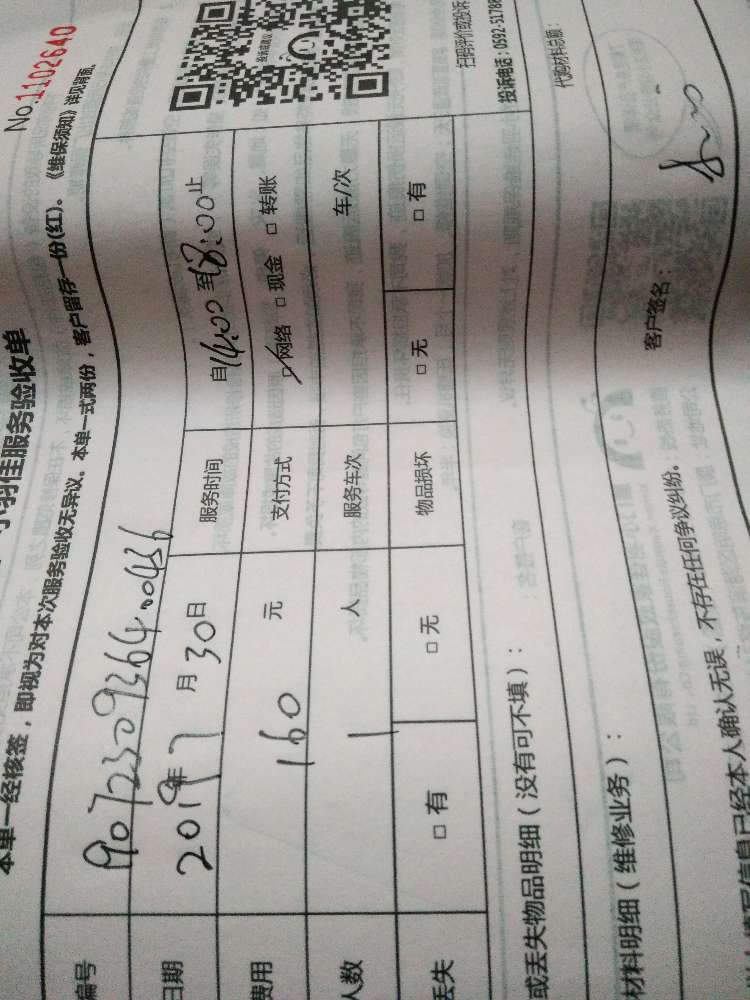 No.1102640
羽佳服务验收单
本单一经核签，即视为对本次服务验收无异议。本单一式两份，客户留存一份(红)。《维保须知》详见背面。
编号
日期 2019年7月30日 服务时间 自14:00至18:00止
费用 160元 支付方式 □网络 □现金 □转账
人数 1人 服务车次 车/次
丢失 □有 □无 物品损坏 □无 □有
或丢失物品明细（没有可不填）：
扫码评价或投诉
投诉电话：0592-51788
材料明细（维修业务）：
代购材料总额：
填写信息已经本人确认无误，不存在任何争议纠纷。
客户签名：